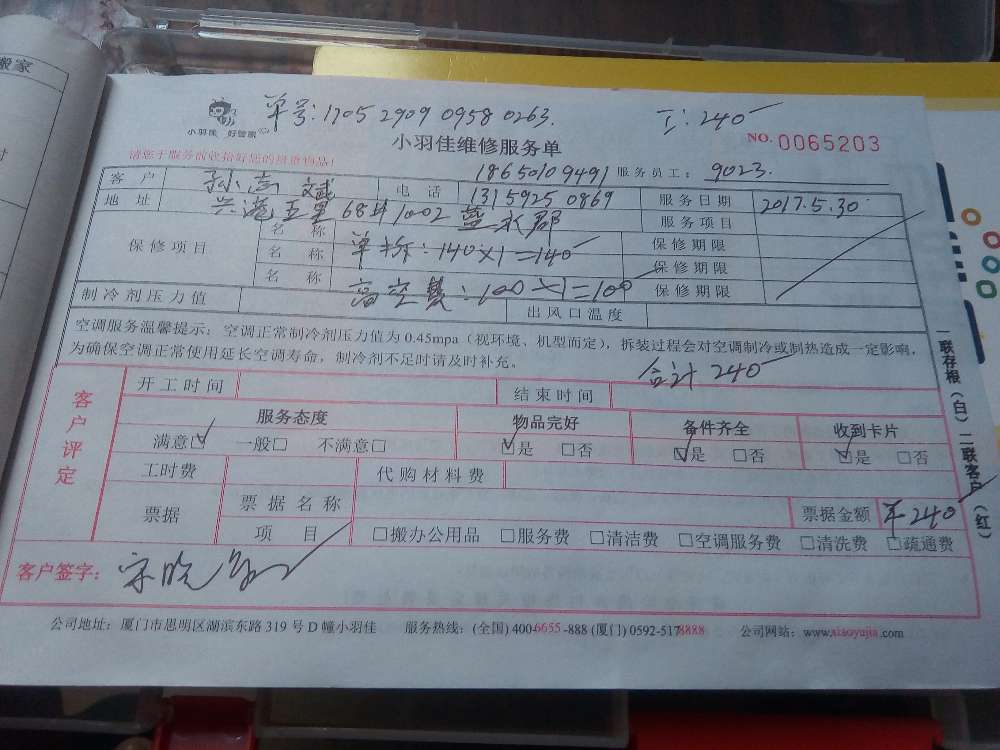 搬家
单号: 1705 2909 0958 0263. 工: 240
小羽佳 好管家
小羽佳维修服务单
NO. 0065203
请您于服务前收拾好您的贵重物品!
18650109491 服务员工: 9023.
客 户 电 话 1315925 0869 服务日期 2017.5.30
地 址 兴港五里 68# 1002 蓝水郡 服务项目
保修项目 名 称 单拆: 140×1=140 保修期限
名 称 保修期限
名 称 高空费: 100×1=100 保修期限
制冷剂压力值 出风口温度
空调服务温馨提示: 空调正常制冷剂压力值为 0.45mpa (视环境、机型而定), 拆装过程会对空调制冷或制热造成一定影响,
为确保空调正常使用延长空调寿命, 制冷剂不足时请及时补充。
合计 240
客户评定 开工时间 结束时间
服务态度 物品完好 备件齐全 收到卡片
满意☑ 一般□ 不满意□ ☑是 □否 ☑是 □否 ☑是 □否
工时费 代购材料费
票据 票据名称 票据金额 ¥240
项 目 □搬办公用品 □服务费 □清洁费 □空调服务费 □清洗费 □疏通费
客户签字:
公司地址: 厦门市思明区湖滨东路 319 号 D 幢小羽佳 服务热线: (全国) 400-6655-888 (厦门) 0592-5178888 公司网站: www.xiaoyujia.com
一联存根(白)二联客户(红)